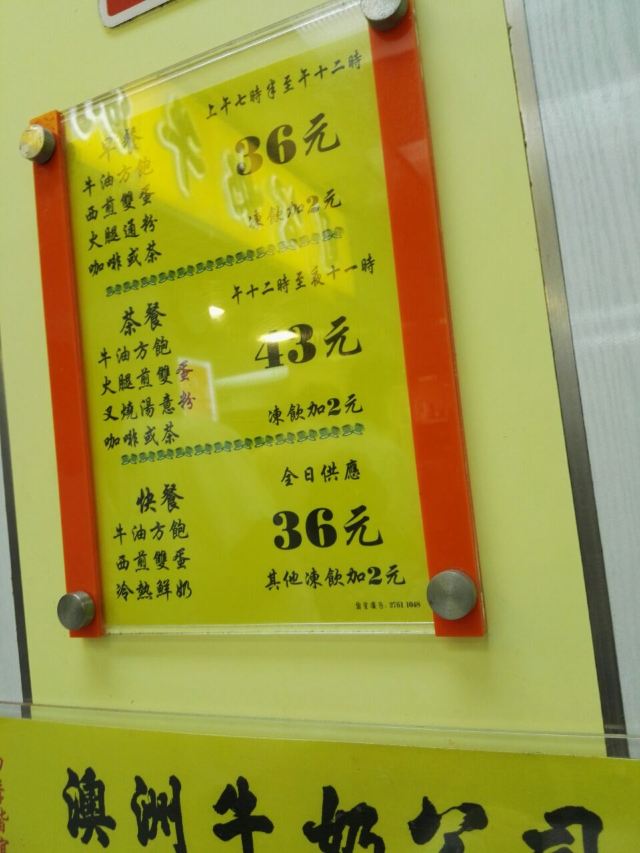 早餐
上午七時半至午十二時
牛油方飽
西煎雙蛋
火腿通粉
咖啡或茶
36元
凍飲加2元
茶餐
午十二時至夜十一時
牛油方飽
火腿煎雙蛋
叉燒湯意粉
咖啡或茶
43元
凍飲加2元
快餐
全日供應
牛油方飽
西煎雙蛋
冷熱鮮奶
36元
其他凍飲加2元
2761 1048
澳洲牛奶公司